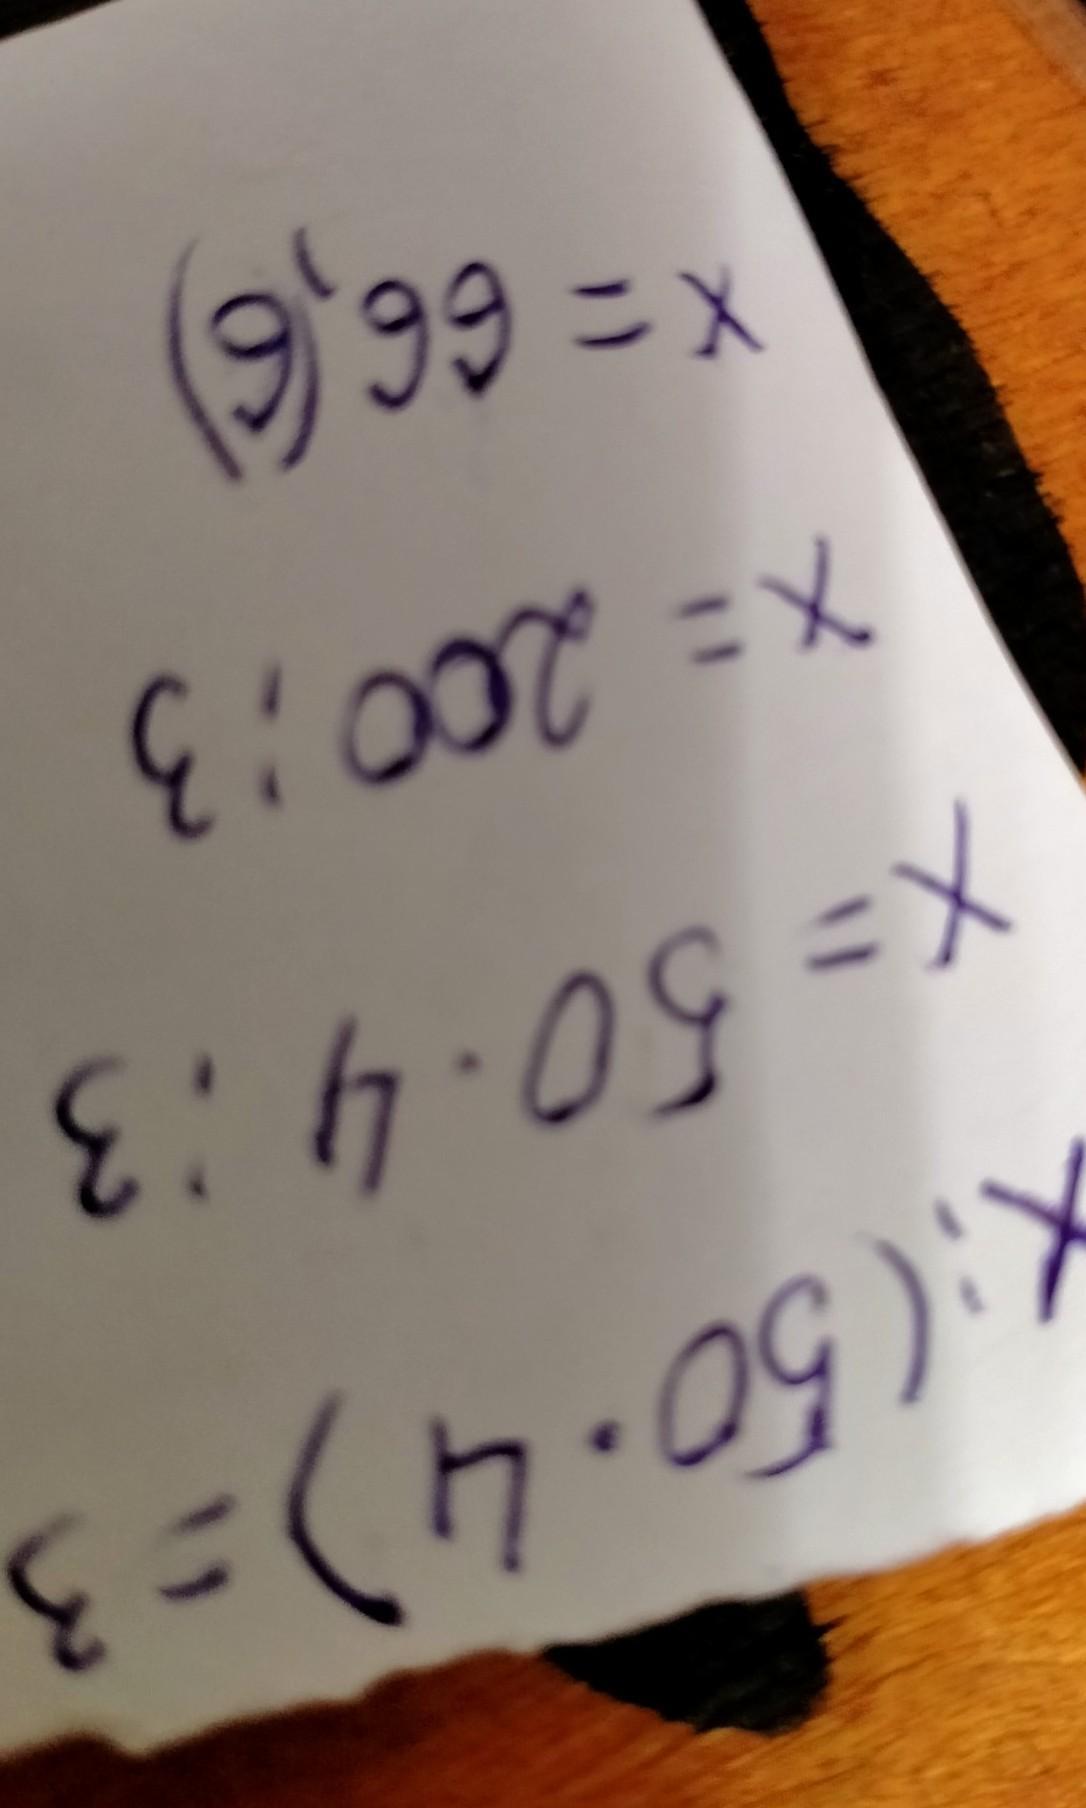 x : (50 · 4) = 3
x = 50 · 4 : 3
x = 200 : 3
x = 66,(6)